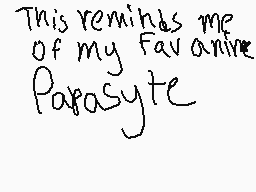 This reminds me
of my fav anime
Parasyte